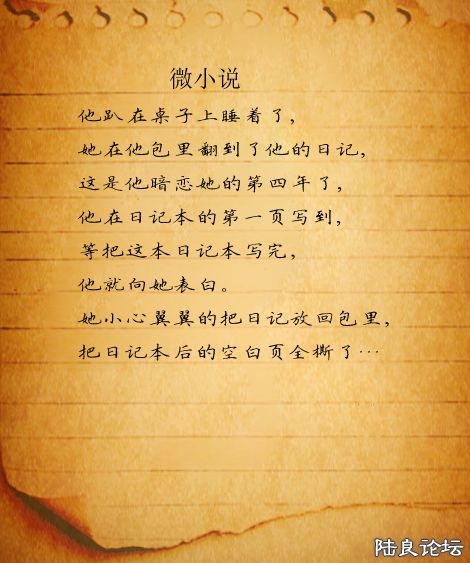 微小说
他趴在桌子上睡着了，
她在他包里翻到了他的日记，
这是他暗恋她的第四年了，
他在日记本的第一页写到，
等把这本日记本写完，
他就向她表白。
她小心翼翼的把日记放回包里，
把日记本后的空白页全撕了…
陆良论坛